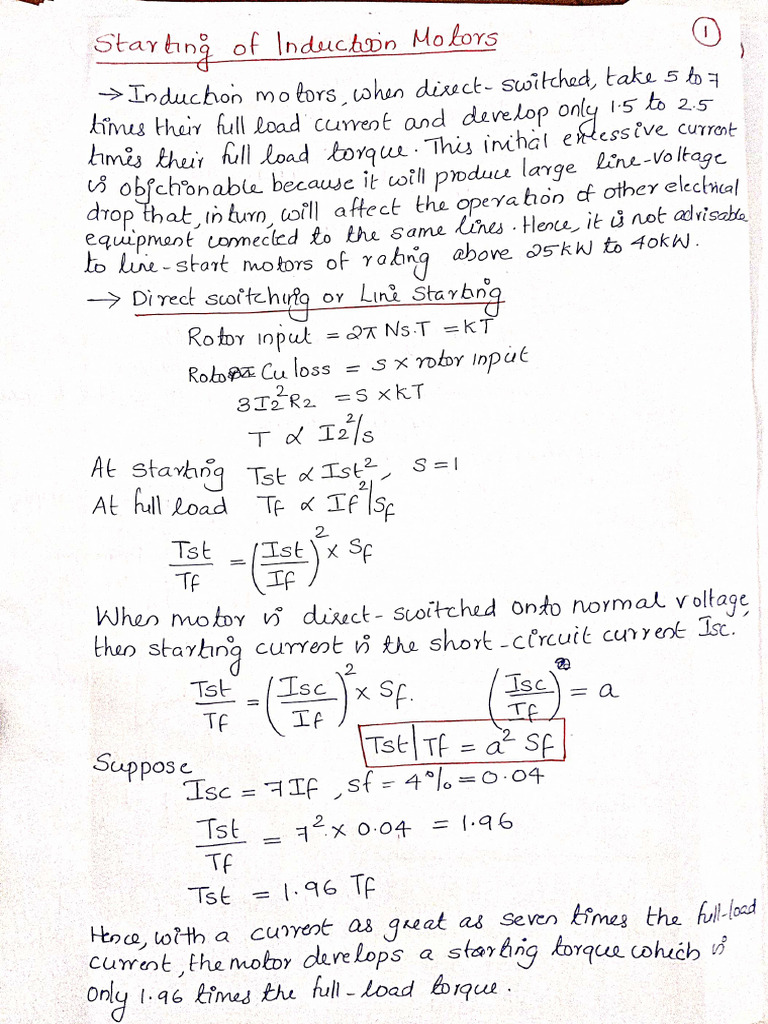 Starting of Induction Motors
1
→ Induction motors, when direct-switched, take 5 to 7
times their full load current and develop only 1.5 to 2.5
times their full load torque. This initial excessive current
is objectionable because it will produce large line-voltage
drop that, in turn, will affect the operation of other electrical
equipment connected to the same lines. Hence, it is not advisable
to line-start motors of rating above 25kW to 40kW.
→ Direct switching or Line Starting
Rotor input = 2π Ns.T = KT
Rotor Cu loss = s x rotor input
3I2² R2 = s x KT
T ∝ I2²/s
At starting Tst ∝ Ist², s = 1
At full load Tf ∝ If²/Sf
Tst/Tf = (Ist/If)² x Sf
When motor is direct-switched onto normal voltage,
then starting current is the short-circuit current Isc.
Tst/Tf = (Isc/If)² x Sf. (Isc/Tf) = a
Tst/Tf = a² Sf
Suppose
Isc = 7If, Sf = 4% = 0.04
Tst/Tf = 7² x 0.04 = 1.96
Tst = 1.96 Tf
Hence, with a current as great as seven times the full-load
current, the motor develops a starting torque which is
only 1.96 times the full-load torque.